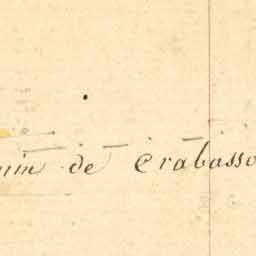 min de Crabasso